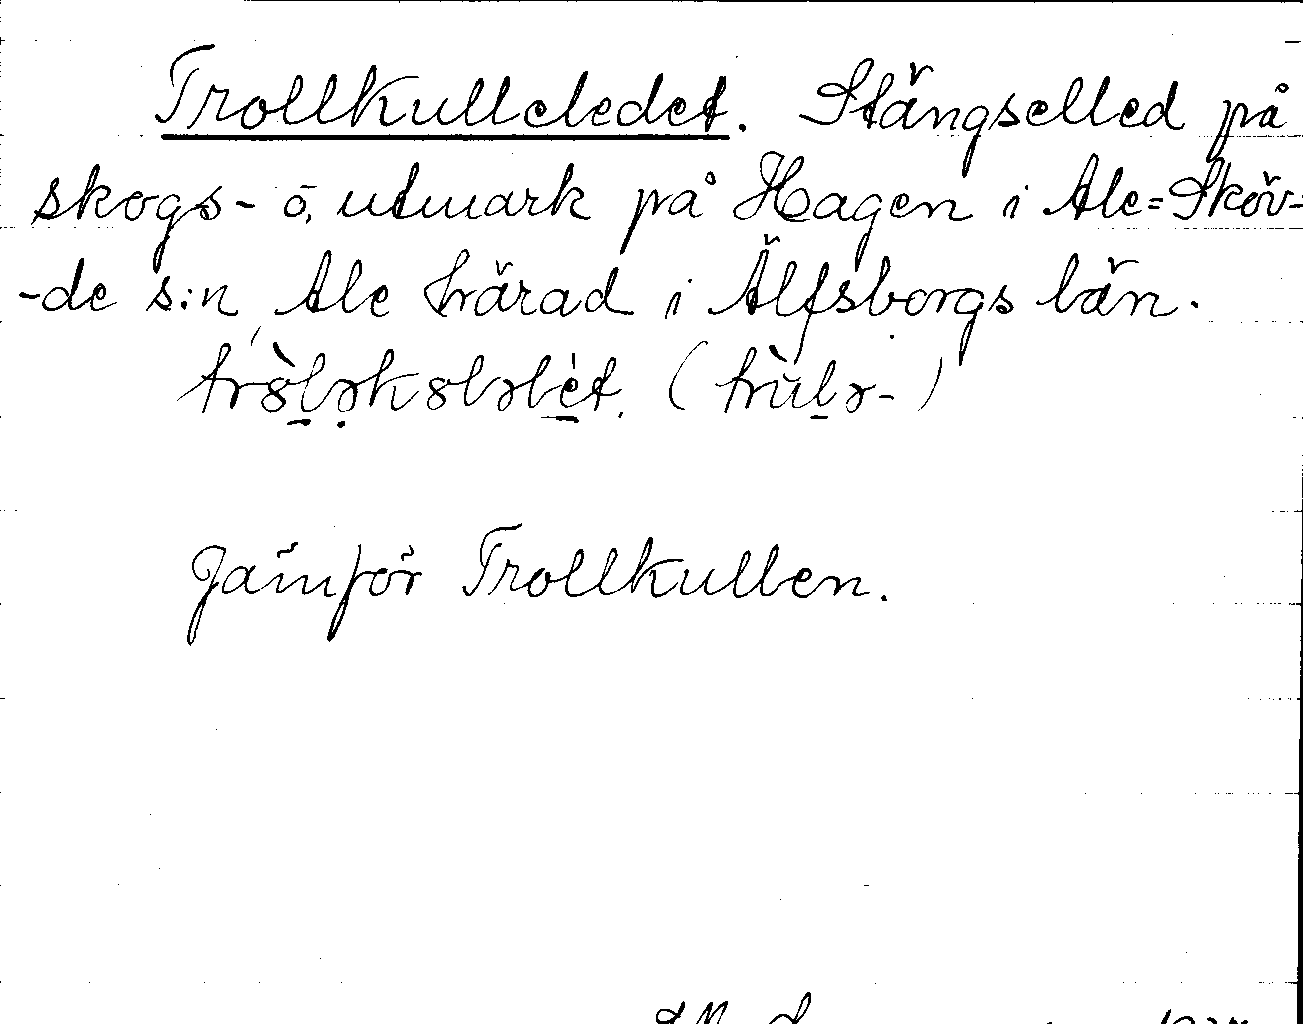 Trollkulleledet. Stängselled på
skogs- ö, utmark på Hagen i Ale=Sköv-
-de s:n, Ale härad i Älfsborgs län.
Jämför Trollkullen.